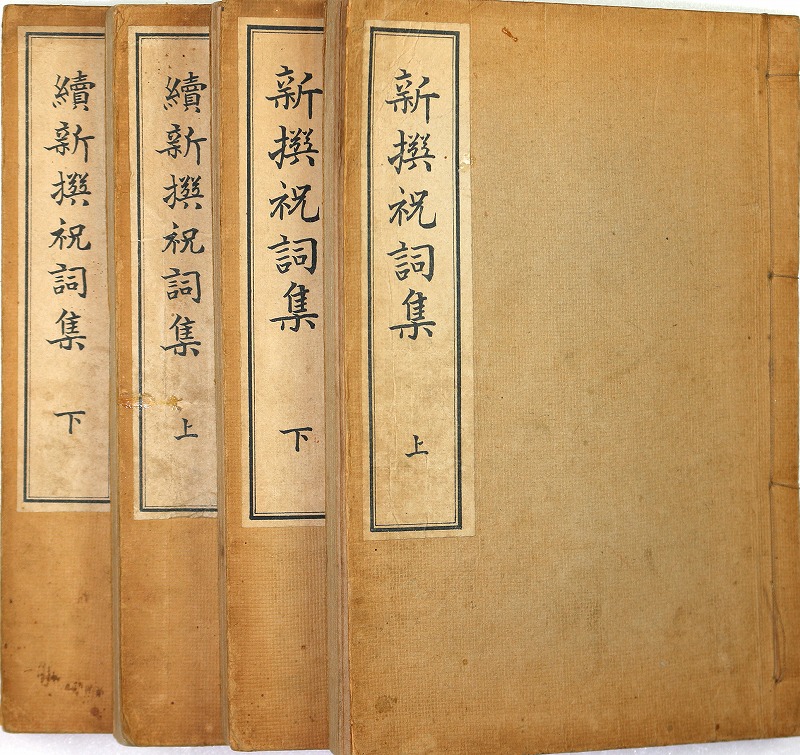 新撰祝詞集 上
新撰祝詞集 下
續新撰祝詞集 上
續新撰祝詞集 下